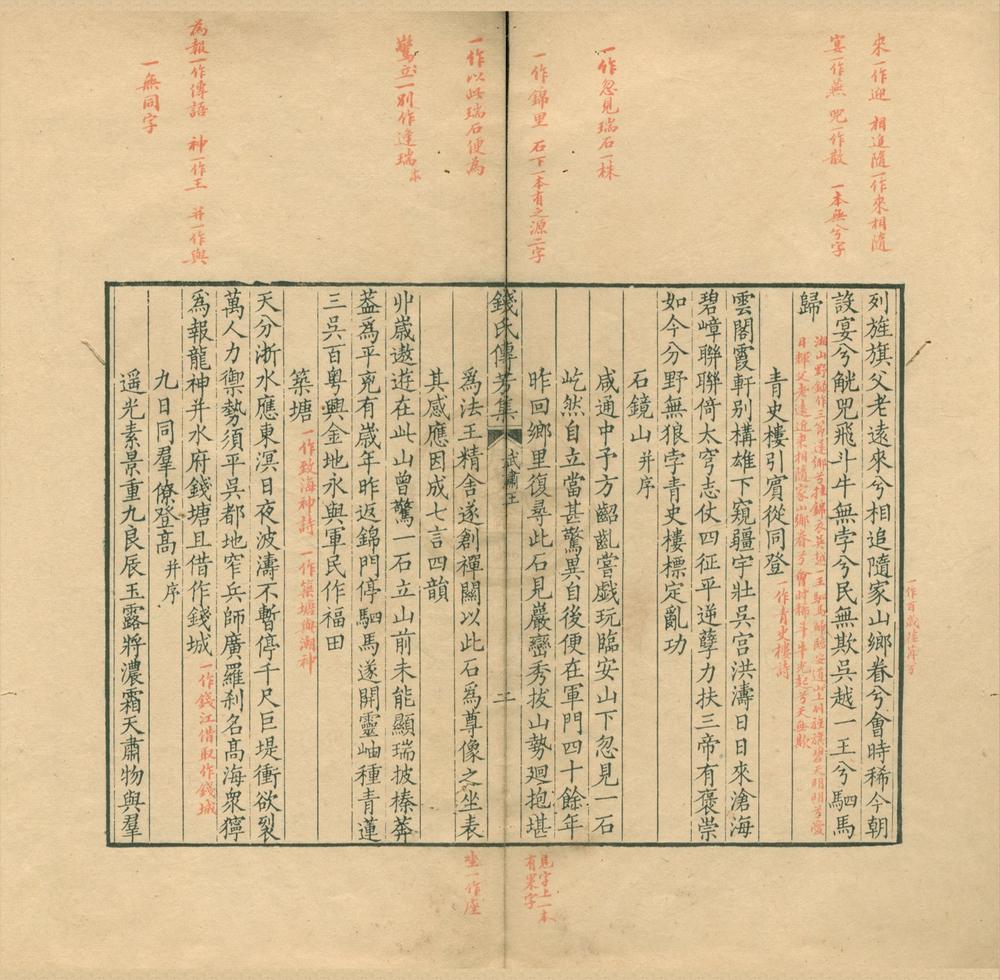 來一作迎　相追隨一作來相隨
宴一作燕　兕一作散　一本無兮字
一作忽見瑞石一株
一作錦里　石下一本有之源二字
一作以此瑞石便為
驚立一別作逢瑞
為報一作傳語　神一作王　并一作與
一無同字
列旌旗父老遠來兮相追隨家山鄉眷兮會時稀今朝
設宴兮觥兕飛斗牛無孛兮民無欺吳越一王兮駟馬
歸
青史樓引賓從同登
一作青史樓詩
雲閣霞軒别構雄下窺疆宇壯吳宫洪濤日日來滄海
碧嶂聯聯倚太穹志仗四征平逆孽力扶三帝有褒崇
如今分野無狼孛青史樓標定亂功
石鏡山并序
咸通中予方齠齔嘗戲玩臨安山下忽見一石
屹然自立當甚驚異自後便在軍門四十餘年
昨回鄉里復尋此石見巖巒秀拔山勢廻抱堪
錢氏傳芳集
武肅王
二
為法王精舍遂創禪關以此石為尊像之坐表
其感應因成七言四韻
丱歲遨遊在此山曾驚一石立山前未能顯瑞披榛莽
葢為平兇有歲年昨返錦門停駟馬遂開靈岫種青蓮
三吳百粤興金地永與軍民作福田
築塘
一作致海神詩　一作築塘與潮神
天分浙水應東溟日夜波濤不暫停千尺巨堤衝欲裂
萬人力禦勢須平吳都地窄兵師廣羅刹名高海衆獰
為報龍神并水府錢塘且借作錢城
一作錢江借取作錢城
九日同羣僚登高并序
遥光素景重九良辰玉露將濃霜天肅物與羣
見字上一本
有果字
坐一作座